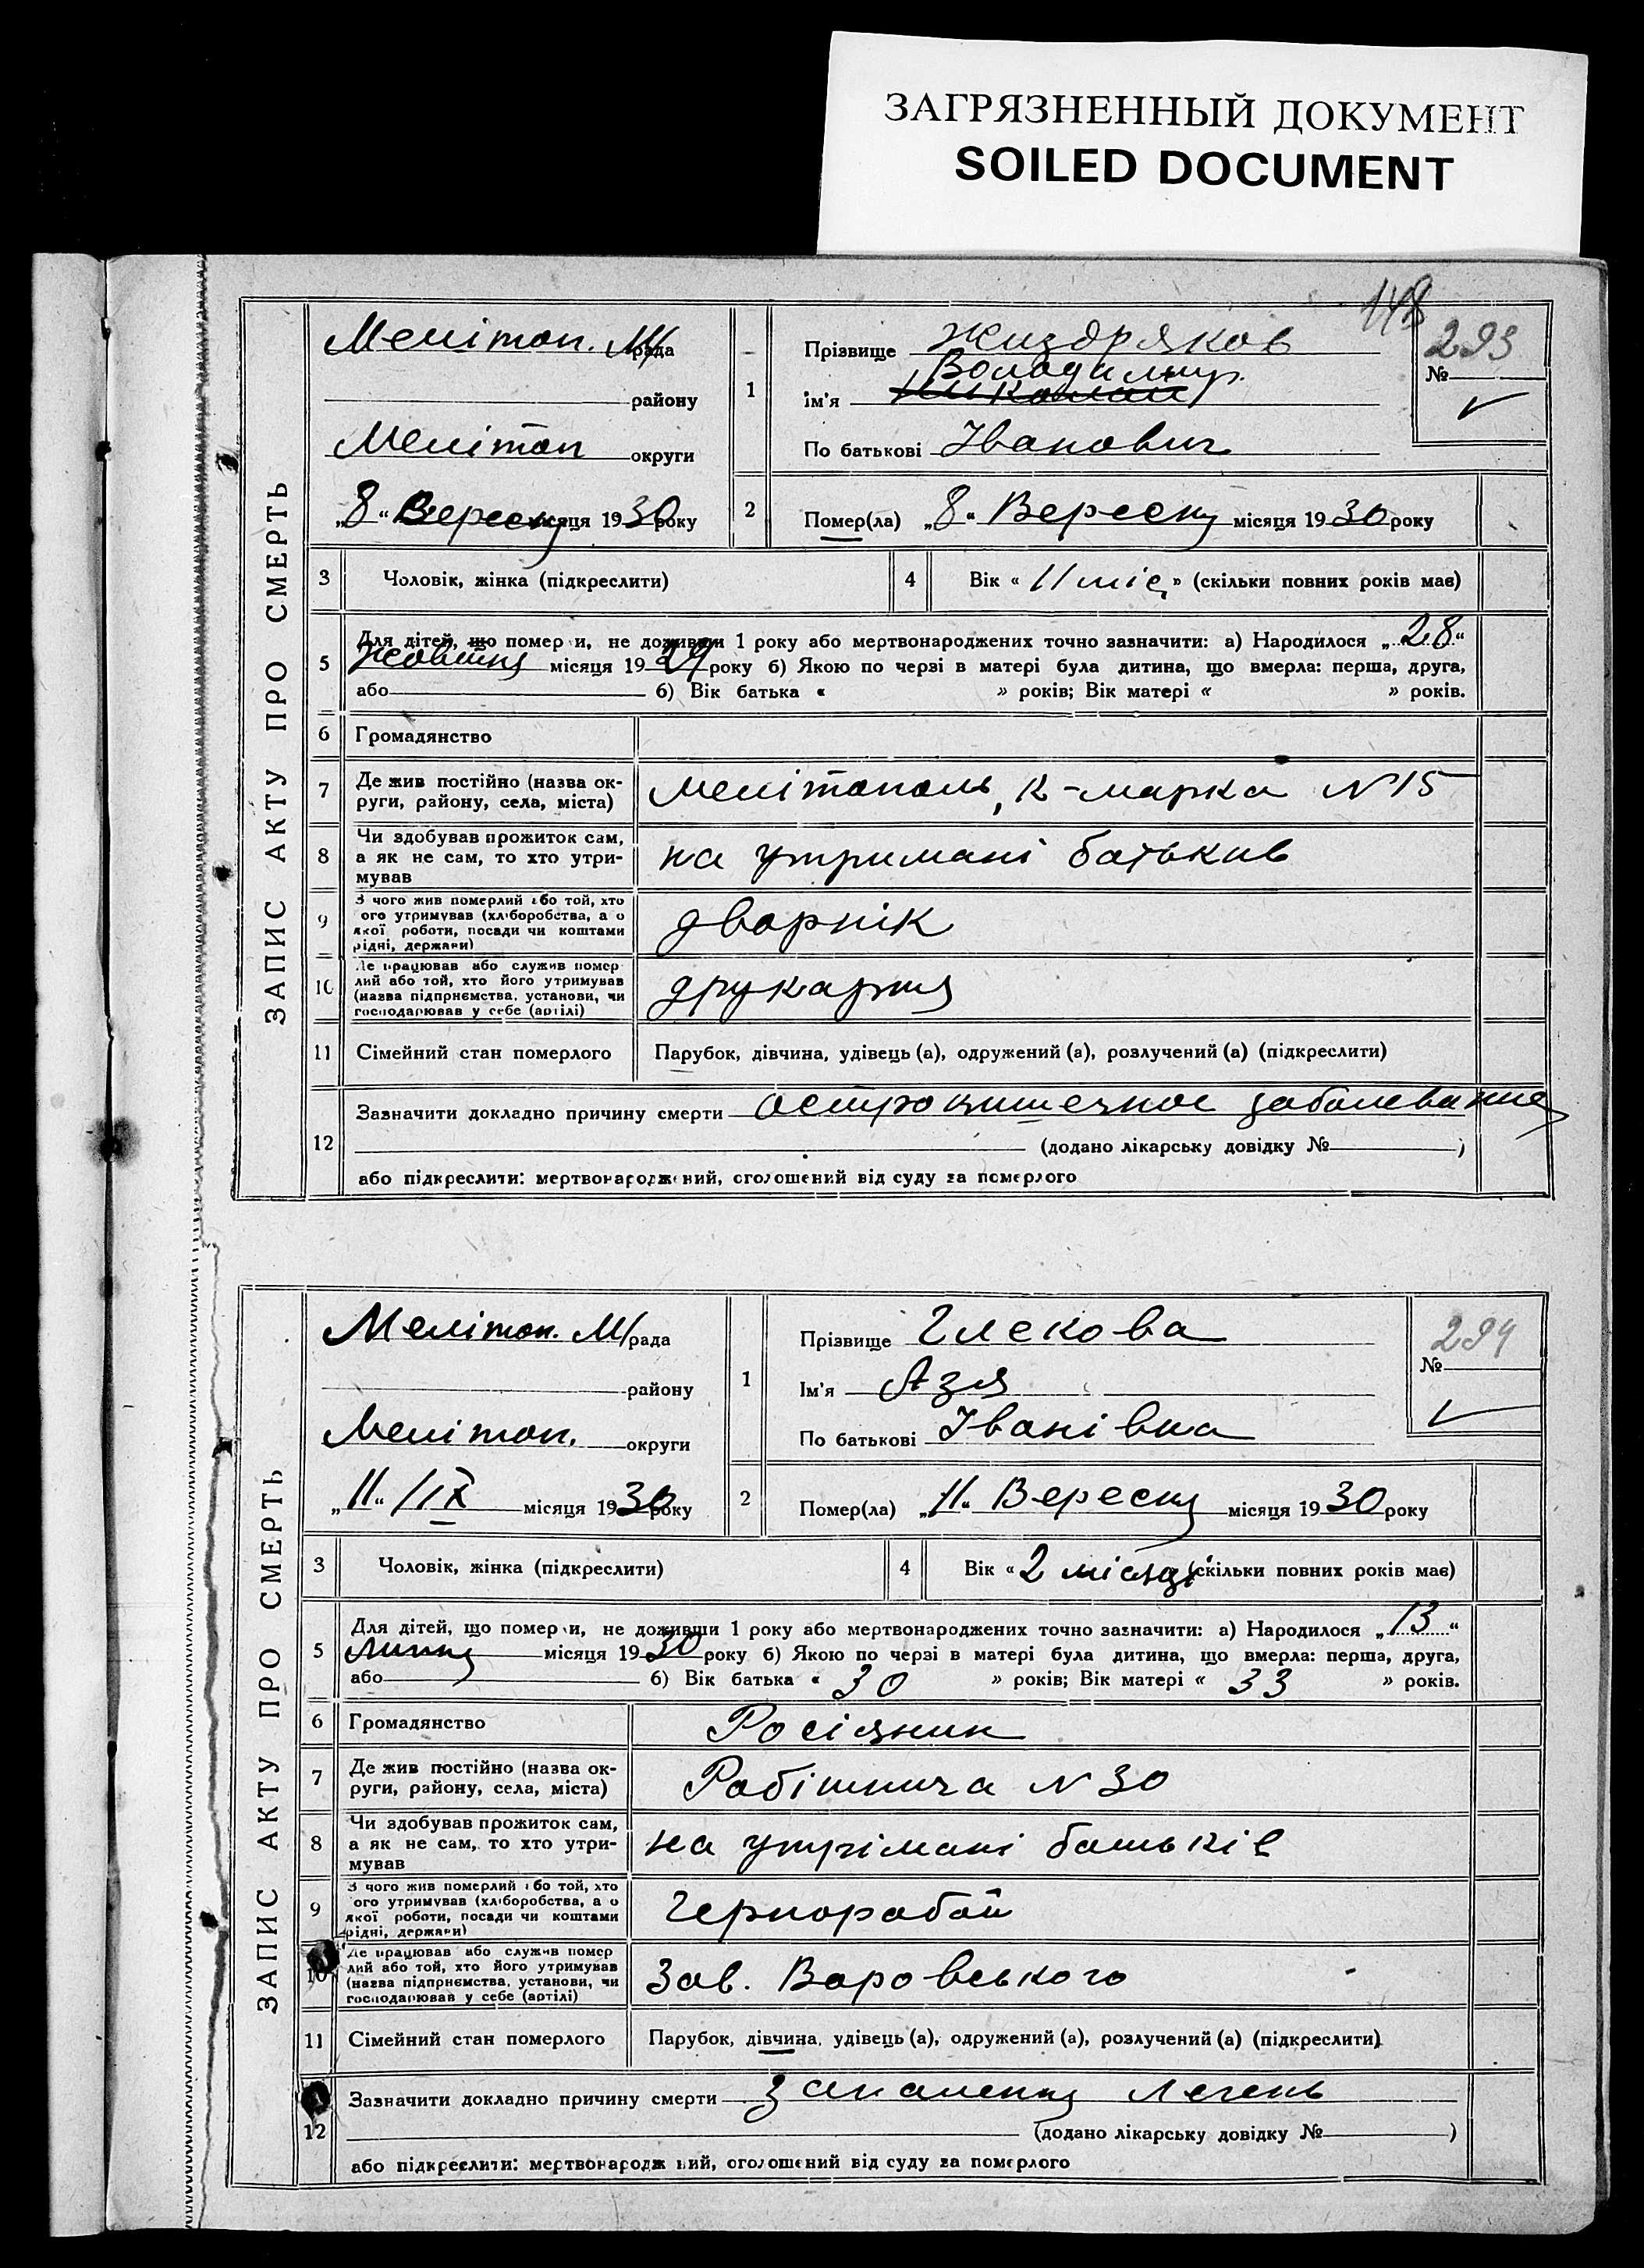 ЗАГРЯЗНЕННЫЙ ДОКУМЕНТ
SOILED DOCUMENT
148
ЗАПИС АКТУ ПРО СМЕРТЬ
Мелітоп. М/рада
району
Мелітоп округи
„8“ Вересня місяця 1930 року
1
Прізвище Жиздряков
Володимир
Ім'я Николай
По батькові Іванович
293
№
2
Помер(ла) „8“ Вересня місяця 1930 року
3 Чоловік, жінка (підкреслити)
4 Вік « 11 міс » (скільки повних років має)
5 Для дітей, що померли, не доживши 1 року або мертвонароджених точно зазначити: а) Народилося „28“
Жовтня місяця 1929 року б) Якою по черзі в матері була дитина, що вмерла: перша, друга,
або б) Вік батька « » років; Вік матері « » років.
6 Громадянство
7 Де жив постійно (назва округи, району, села, міста) Мелітополь, К-Марка N 15
8 Чи здобував прожиток сам, а як не сам, то хто утримував на утримані батькив
9 З чого жив померлий або той, хто ого утримував (хліборобства, а о якої роботи, посади чи коштами рідні, держави) дворнік
10 Де працював або служив померлий або той, хто його утримував (назва підприємства, установи, чи господарював у себе (артілі) друкарня
11 Сімейний стан померлого Парубок, дівчина, удівець (а), одружений (а), розлучений (а) (підкреслити)
12 Зазначити докладно причину смерти остро кишечное заболевание
(додано лікарську довідку № )
або підкреслити: мертвонароджений, оголошений від суду за померлого
ЗАПИС АКТУ ПРО СМЕРТЬ
Мелітоп. М/рада
району
Мелітоп. округи
„11“ /IX місяця 1930 року
1
Прізвище Глекова
Ім'я Азя
По батькові Іванівна
294
№
2
Помер(ла) „11“ Вересня місяця 1930 року
3 Чоловік, жінка (підкреслити)
4 Вік « 2 місяця (скільки повних років має)
5 Для дітей, що померли, не доживши 1 року або мертвонароджених точно зазначити: а) Народилося „13“
Липня місяця 1930 року б) Якою по черзі в матері була дитина, що вмерла: перша, друга,
або б) Вік батька « 30 » років; Вік матері « 33 » років.
6 Громадянство Росіянин
7 Де жив постійно (назва округи, району, села, міста) Робітнича N 30
8 Чи здобував прожиток сам, а як не сам, то хто утримував на утрімані батьків
9 З чого жив померлий або той, хто ого утримував (хліборобства, а о якої роботи, посади чи коштами рідні, держави) Чернорабой
10 Де працював або служив померлий або той, хто його утримував (назва підприємства, установи, чи господарював у себе (артілі) Зав. Воровського
11 Сімейний стан померлого Парубок, дівчина, удівець (а), одружений (а), розлучений (а) (підкреслити)
12 Зазначити докладно причину смерти Запаления Легень
(додано лікарську довідку № )
або підкреслити: мертвонароджений, оголошений від суду за померлого